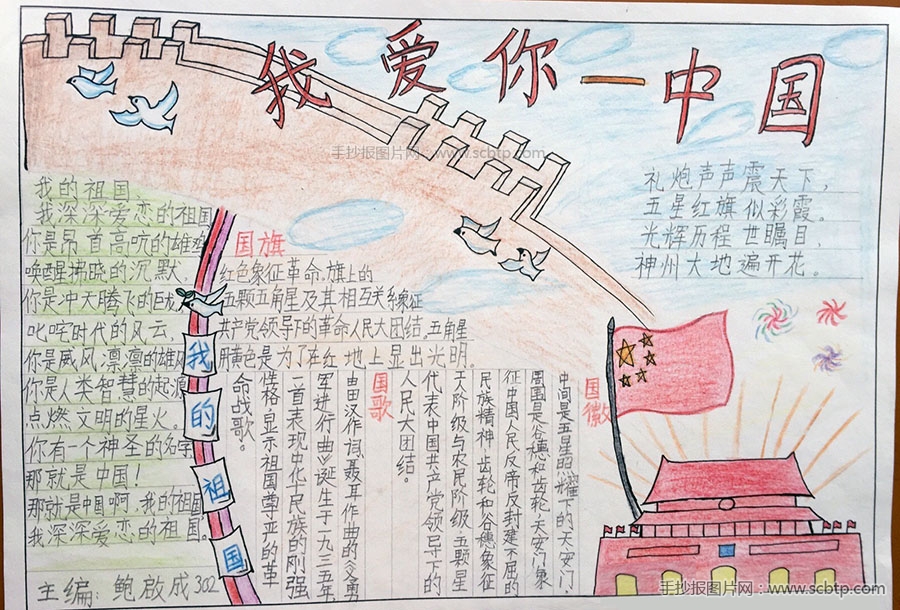 我爱你—中国
手抄报图片网:www.scbtp.com
我的祖国
我深深爱恋的祖国
你是昂首高吭的雄
唤醒拂晓的沉默
你是冲天腾飞的巨
叱咤时代的风云
你是威风凛凛的雄
你是人类智慧的起源
点燃文明的星火。
你有一个神圣的名字
那就是中国!
那就是中国啊,我的祖国
我深深爱恋的祖国。
主编:鲍啟成302
我的祖国
国旗
红色象征革命,旗上的
五颗五角星及其相互关系象征
共产党领导下的革命人民大团结。五角星
用黄色是为了在红地上显出光明。
礼炮声声震天下,
五星红旗似彩霞。
光辉历程世瞩目,
神州大地遍开花。
国徽
中间是五星照耀下的天安门,
周围是谷穗和齿轮,天安门象
征中国人民反帝反封建不屈的
民族精神,齿轮和谷穗象征
工人阶级与农民阶级,五颗星
代表中国共产党领导下的
人民大团结。
国歌
由田汉作词,聂耳作曲的《义勇
军进行曲》诞生于一九三五年,
一首表现中化民族的刚强
性格,显示祖国尊严的革
命战歌。
手抄报图片网:www.scbtp.com